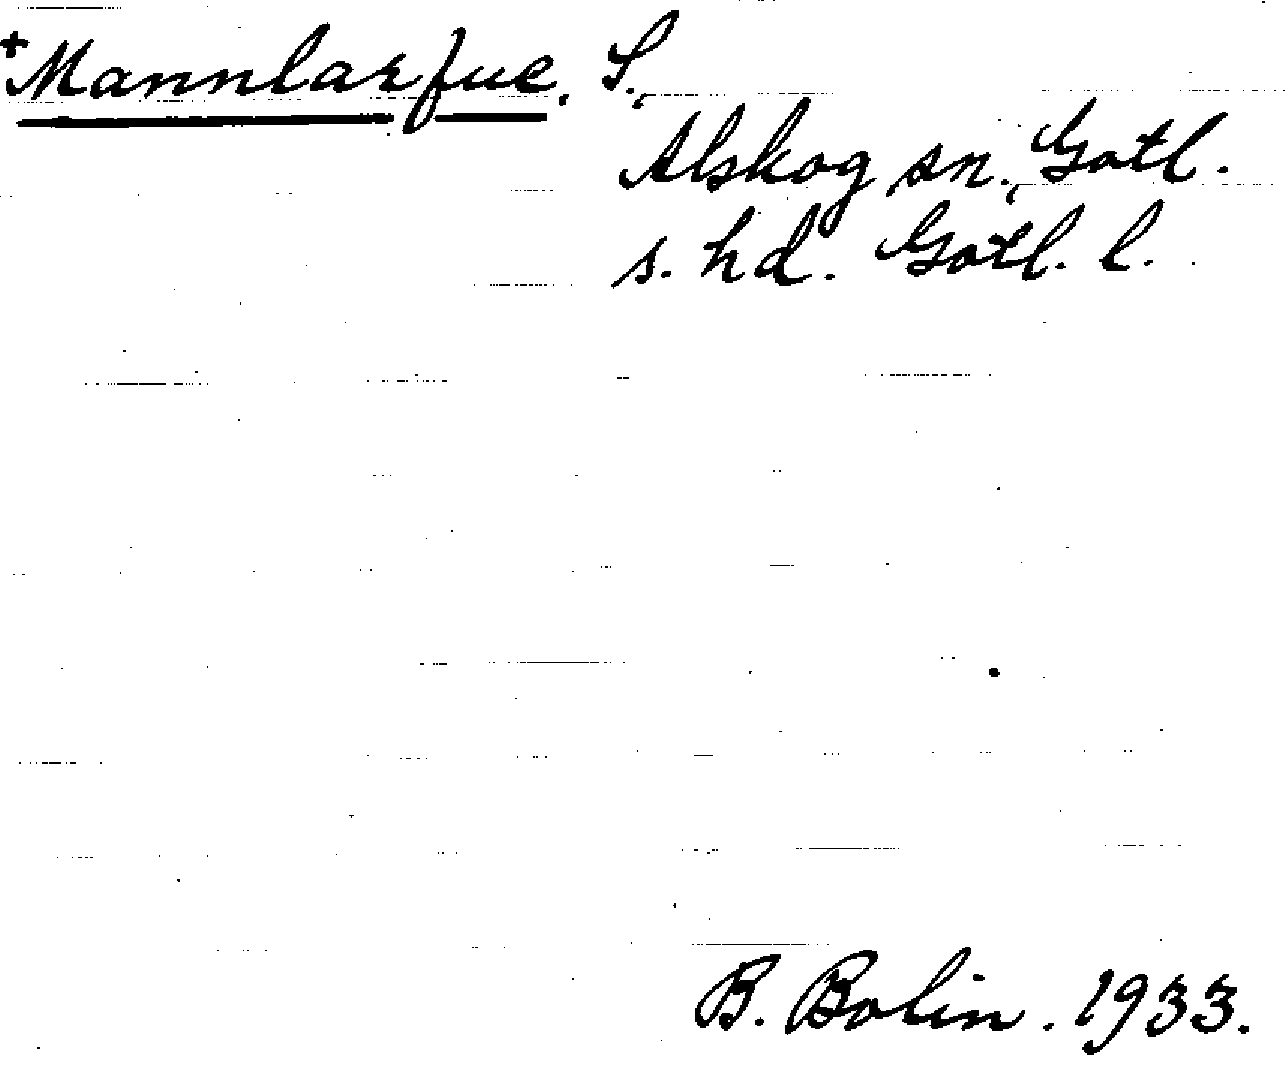 +Mannlarfue. S.,
Alskog sn., Gotl.
s. hd. Gotl. l.
B. Bolin. 1933.